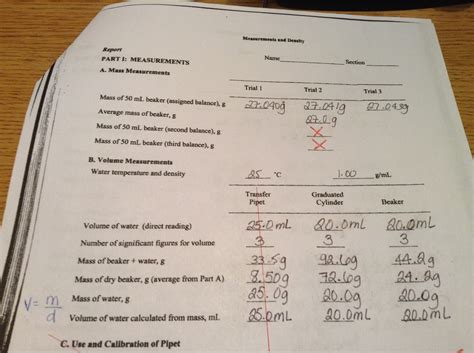 Measurements and Density
Report
Name Section
PART I: MEASUREMENTS
A. Mass Measurements
Trial 1 Trial 2 Trial 3
Mass of 50 mL beaker (assigned balance), g 27.040g 27.041g 27.043g
Average mass of beaker, g 27.0g
Mass of 50 mL beaker (second balance), g X
Mass of 50 mL beaker (third balance), g X
B. Volume Measurements
Water temperature and density 25 °C 1.00 g/mL
Transfer Pipet Graduated Cylinder Beaker
Volume of water (direct reading) 25.0mL 20.0mL 20.0mL
Number of significant figures for volume 3 3 3
Mass of beaker + water, g 33.5g 92.6g 44.2g
Mass of dry beaker, g (average from Part A) 8.50g 72.6g 24.2g
Mass of water, g 25.0g 20.0g 20.0g
V = m/d Volume of water calculated from mass, mL 25.0mL 20.0mL 20.0mL
C. Use and Calibration of Pipet